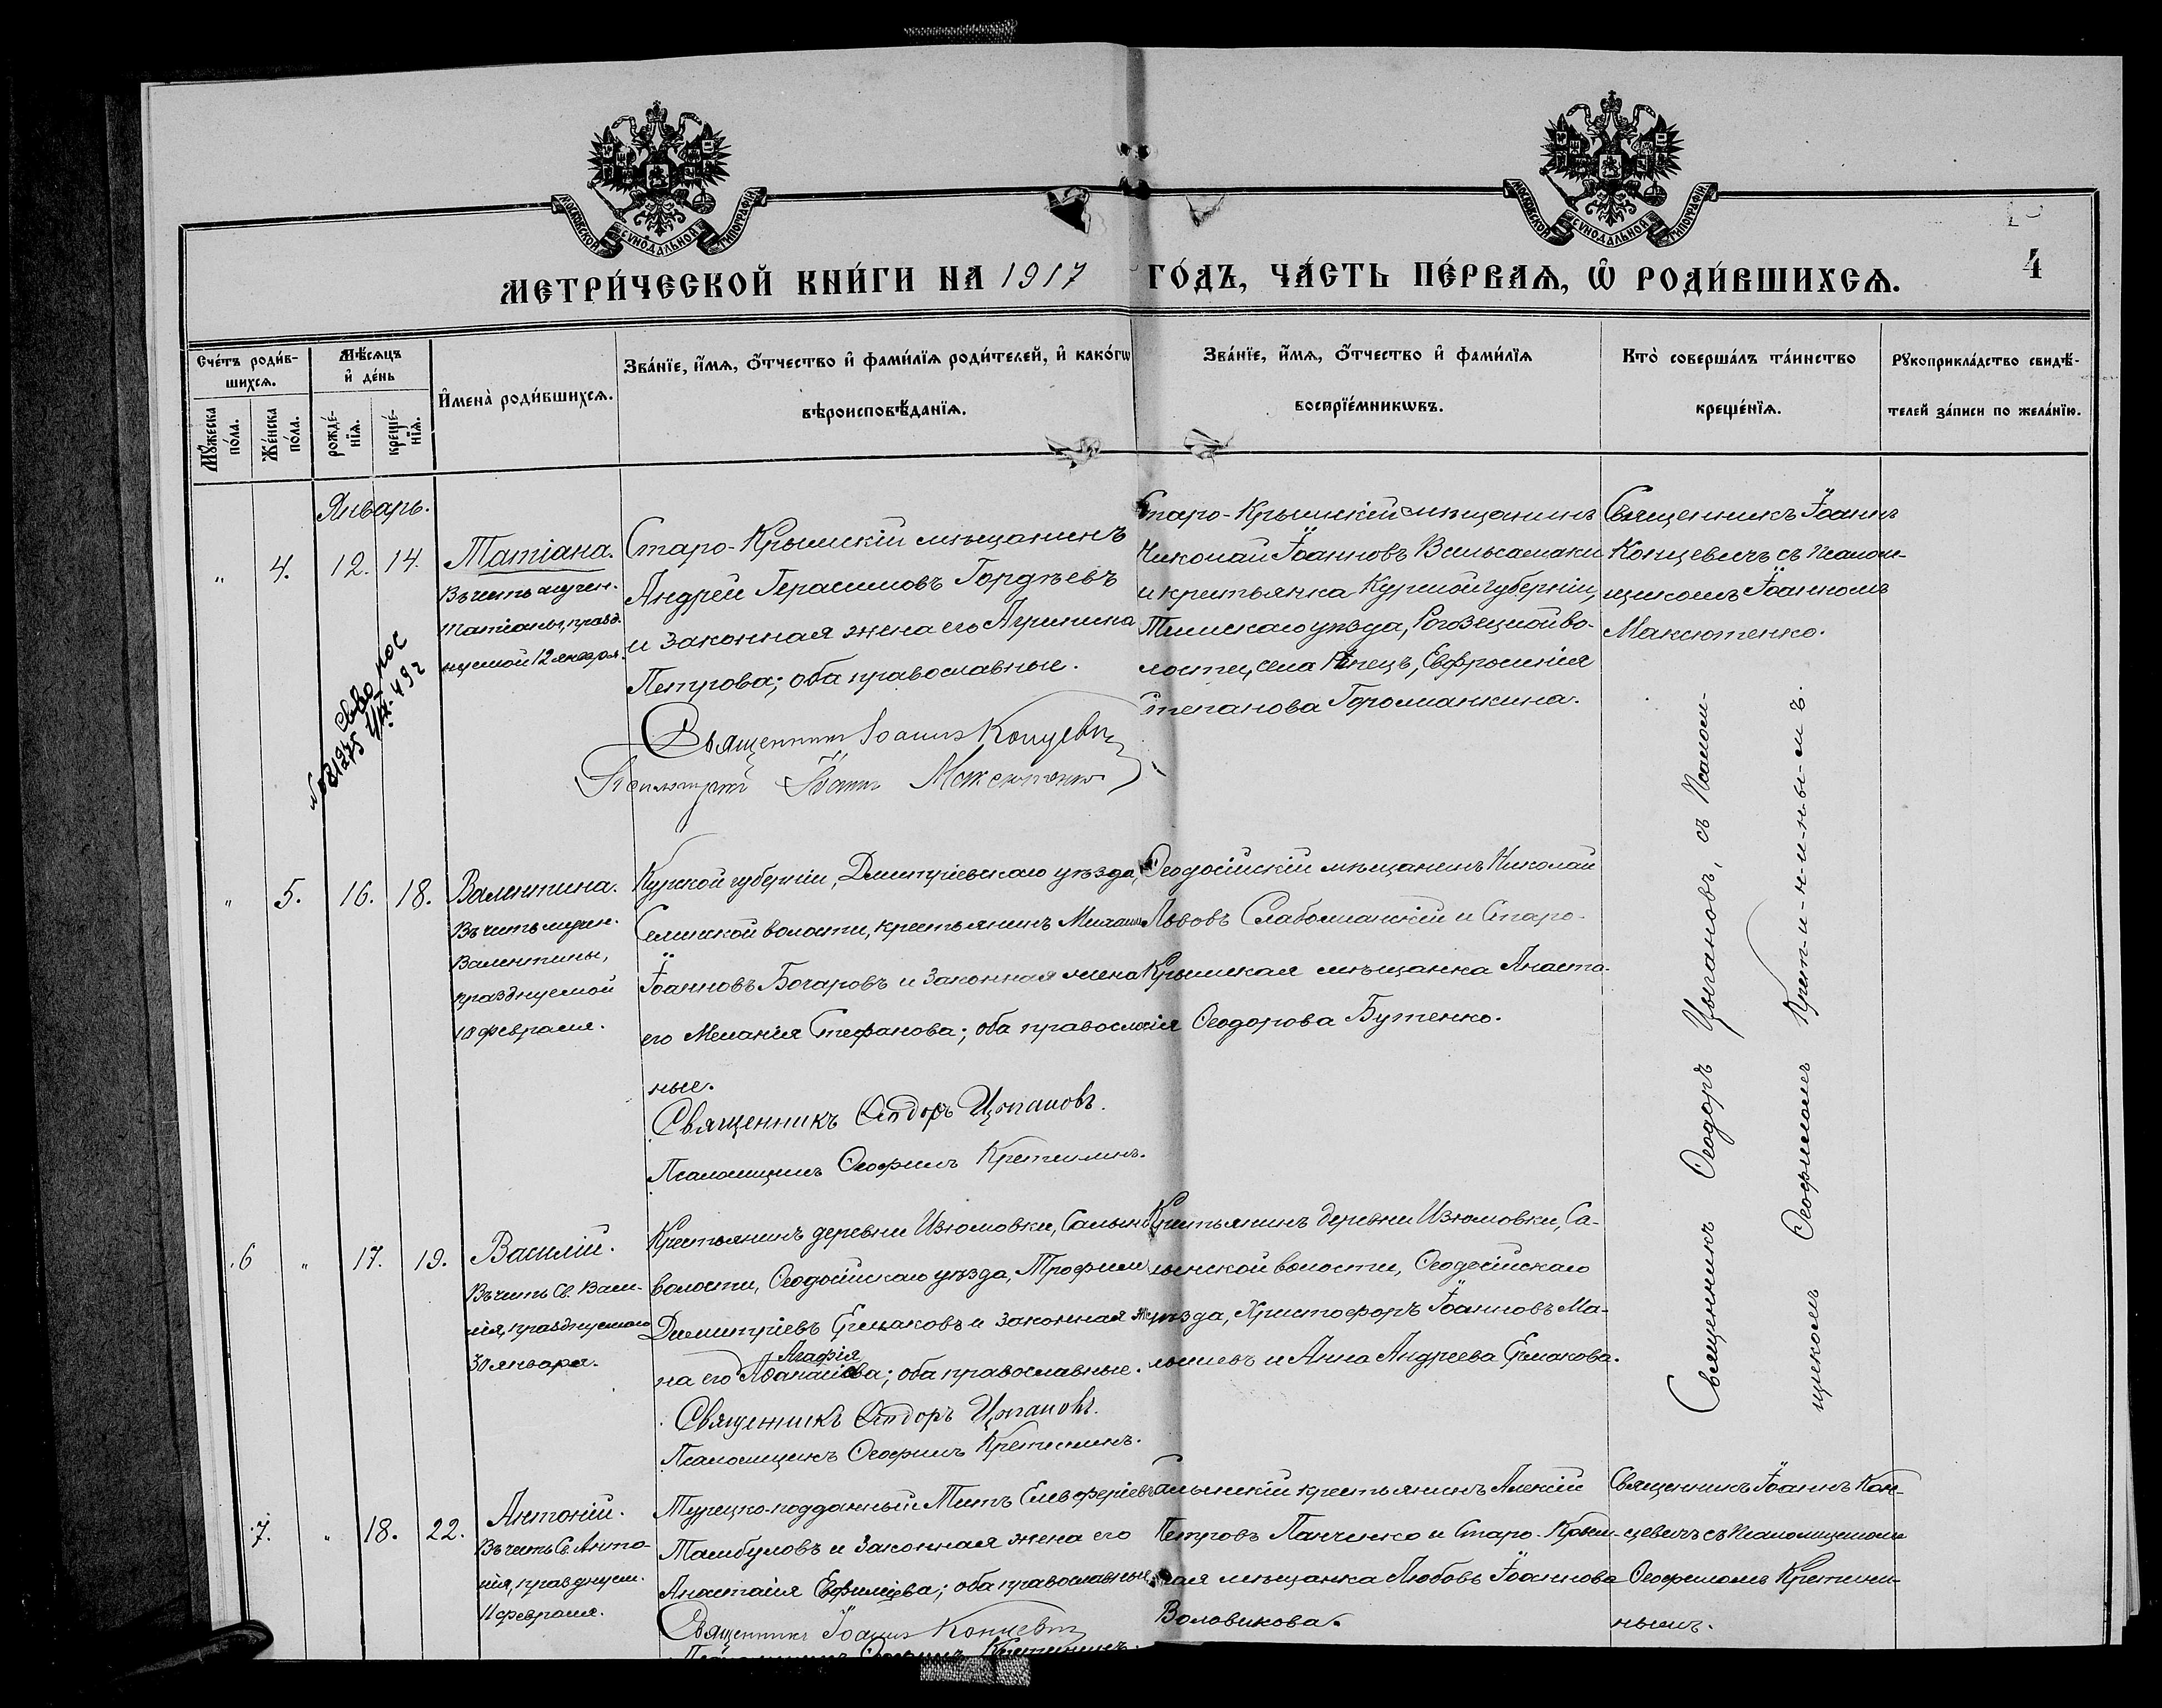 МОСКОВСКОЙ СѴНОДАЛЬНОЙ ТИПОГРАФІИ
МОСКОВСКОЙ СѴНОДАЛЬНОЙ ТИПОГРАФІИ
МЕТРИ́ЧЕСКОЙ КНИ́ГИ НА 1917 ГО́ДЪ, ЧА́СТЬ ПЕ́РВАѦ, Ѡ҆ РОДИ́ВШИХСѦ.
4
Сче́тъ роди́в-
шихсѧ.
Мꙋ́жеска по́ла.
Же́нска по́ла.
Мѣ́сѧцъ
и҆ де́нь
рожде́-
нїѧ.
креще́-
нїѧ.
И҆мена̀ роди́вшихсѧ.
Зва́нїе, и҆́мѧ, ѻ҆́тчество и҆ фами́лїѧ роди́телей, и҆ како́гѡ
вѣроисповѣ́данїѧ.
Зва́нїе, и҆́мѧ, ѻ҆́тчество и҆ фами́лїѧ
воспрїе́мникѡвъ.
Кто̀ соверша́лъ та́инство
креще́нїѧ.
Рꙋкоприкла́дство свидѣ́-
телей за́писи по жела́нїю.
Январь.
" 4. 12. 14.
Татіана.
Въ честь мучен.
Татіаны, празд-
нуемой 12 января.
Старо-Крымскій мѣщанинъ
Андрей Герасимовъ Гордѣевъ
и законная жена его Агриппина
Петрова; оба православные.
Священникъ Іоаннъ Концевичъ
Псаломщикъ Іоаннъ Максютенко
Старо-Крымскій мѣщанинъ
Николай Іоанновъ Вальсамаки
и крестьянка Курской губерніи,
Тимскаго уѣзда, Рогозецкой во-
лости, села Репецъ, Евфросинія
Степанова Горожанкина.
Священникъ Іоаннъ
Концевичъ съ псалом-
щикомъ Іоанномъ
Максютенко.
" 5. 16. 18.
Валентина.
Въ честь мучен.
Валентины,
празднуемой
10 февраля.
Курской губерніи, Дмитріевскаго уѣзда,
волости, крестьянинъ Михаилъ
Іоанновъ Богаровъ и законная жена
его Меланія Стефанова; оба православ-
ные.
Священникъ Ѳеодоръ Цыгановъ.
Псаломщикъ Ѳеофилъ Кретининъ.
Ѳеодосійскій мѣщанинъ Николай
Львовъ Слабошанскій и Старо-
Крымская мѣщанка Анаста-
сія Ѳеодорова Бутенко.
Священникъ Ѳеодоръ Цыгановъ, съ псалом-
щикомъ Ѳеофиломъ Крет-и-н-и-н-ы-м-ъ.
6 " 17. 19.
Василій.
Въ честь Св. Васи-
лія, празднуемаго
30 января.
Крестьянинъ деревни Изюмовки, Салынской
волости, Ѳеодосійскаго уѣзда, Трофимъ
Димитріевъ Ермаковъ и законная же-
на его Агафія Аѳанасіева; оба православные.
Священникъ Ѳеодоръ Цыгановъ.
Псаломщикъ Ѳеофилъ Кретининъ.
Крестьянинъ деревни Изюмовки, Са-
лынской волости, Ѳеодосійскаго
уѣзда, Христофоръ Іоанновъ Ма-
лышевъ и Анна Андреева Ермакова.
7. " 18. 22.
Антоній.
Въ честь Св. Анто-
нія, празднуем.
11 февраля.
Турецко-подданный Митъ Елевферіевъ
Тамбуловъ и законная жена его
Анастасія Евфиміева; оба православные
Священникъ Іоаннъ Концевичъ
Псаломщикъ Ѳеофилъ Кретининъ.
Салынскій крестьянинъ Алексій
Петровъ Панченко и Старо-Крым-
ская мѣщанка Любовь Іоаннова
Воловикова.
Священникъ Іоаннъ Кон-
цевичъ съ псаломщикомъ
Ѳеофиломъ Кретини-
нымъ.